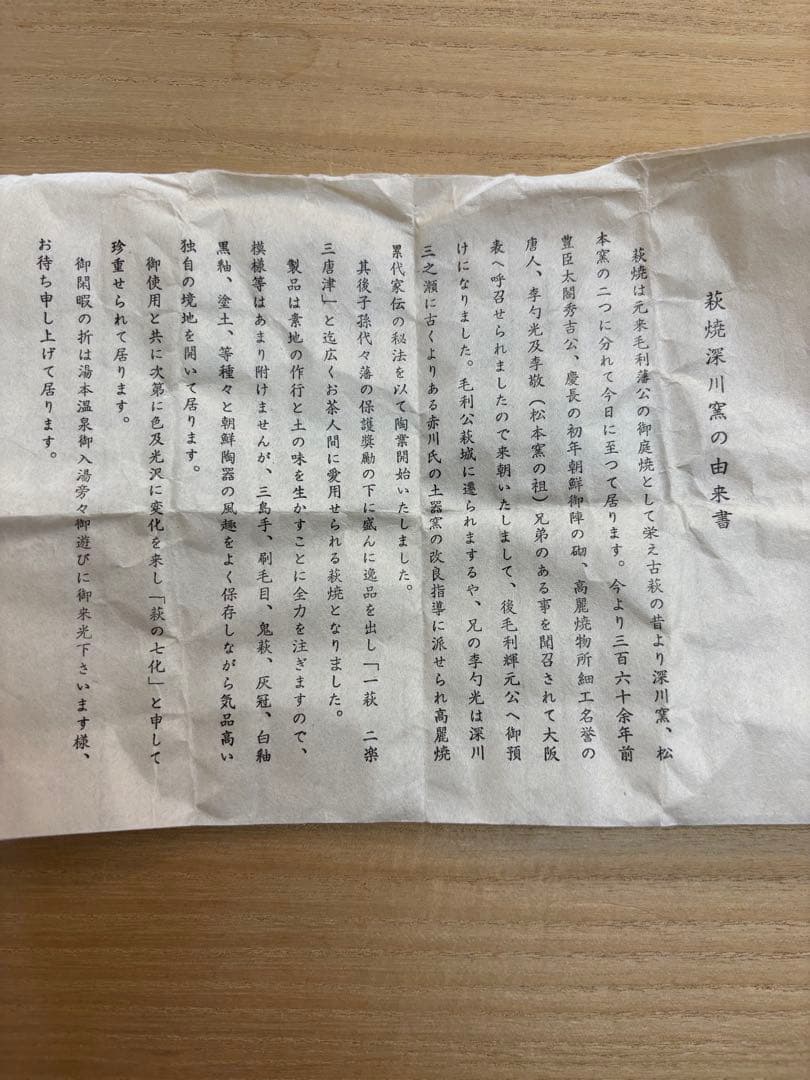 萩焼深川窯の由来書
萩焼は元来毛利藩公の御庭焼として栄え古萩の昔より深川窯、松
本窯の二つに分れて今日に至つて居ります。今より三百六十余年前
豊臣太閤秀吉公、慶長の初年朝鮮御陣の砌、高麗焼物所細工名誉の
唐人、李勺光及李敬（松本窯の祖）兄弟のある事を聞召されて大阪
表へ呼召せられましたので来朝いたしまして、後毛利輝元公へ御預
けになりました。毛利公萩城に遷られまするや、兄の李勺光は深川
三之瀬に古くよりある赤川氏の土器窯の改良指導に派せられ高麗焼
累代家伝の秘法を以て陶業開始いたしました。
其後子孫代々藩の保護奨励の下に盛んに逸品を出し「一萩　二楽
三唐津」と迄広くお茶人間に愛用せられる萩焼となりました。
製品は素地の作行と土の味を生かすことに全力を注ぎますので、
模様等はあまり附けませんが、三島手、刷毛目、鬼萩、灰冠、白釉
黒釉、塗土、等種々と朝鮮陶器の風趣をよく保存しながら気品高い
独自の境地を開いて居ります。
御使用と共に次第に色及光沢に変化を来し「萩の七化」と申して
珍重せられて居ります。
御閑暇の折は湯本温泉御入湯旁々御遊びに御来光下さいます様、
お待ち申し上げて居ります。